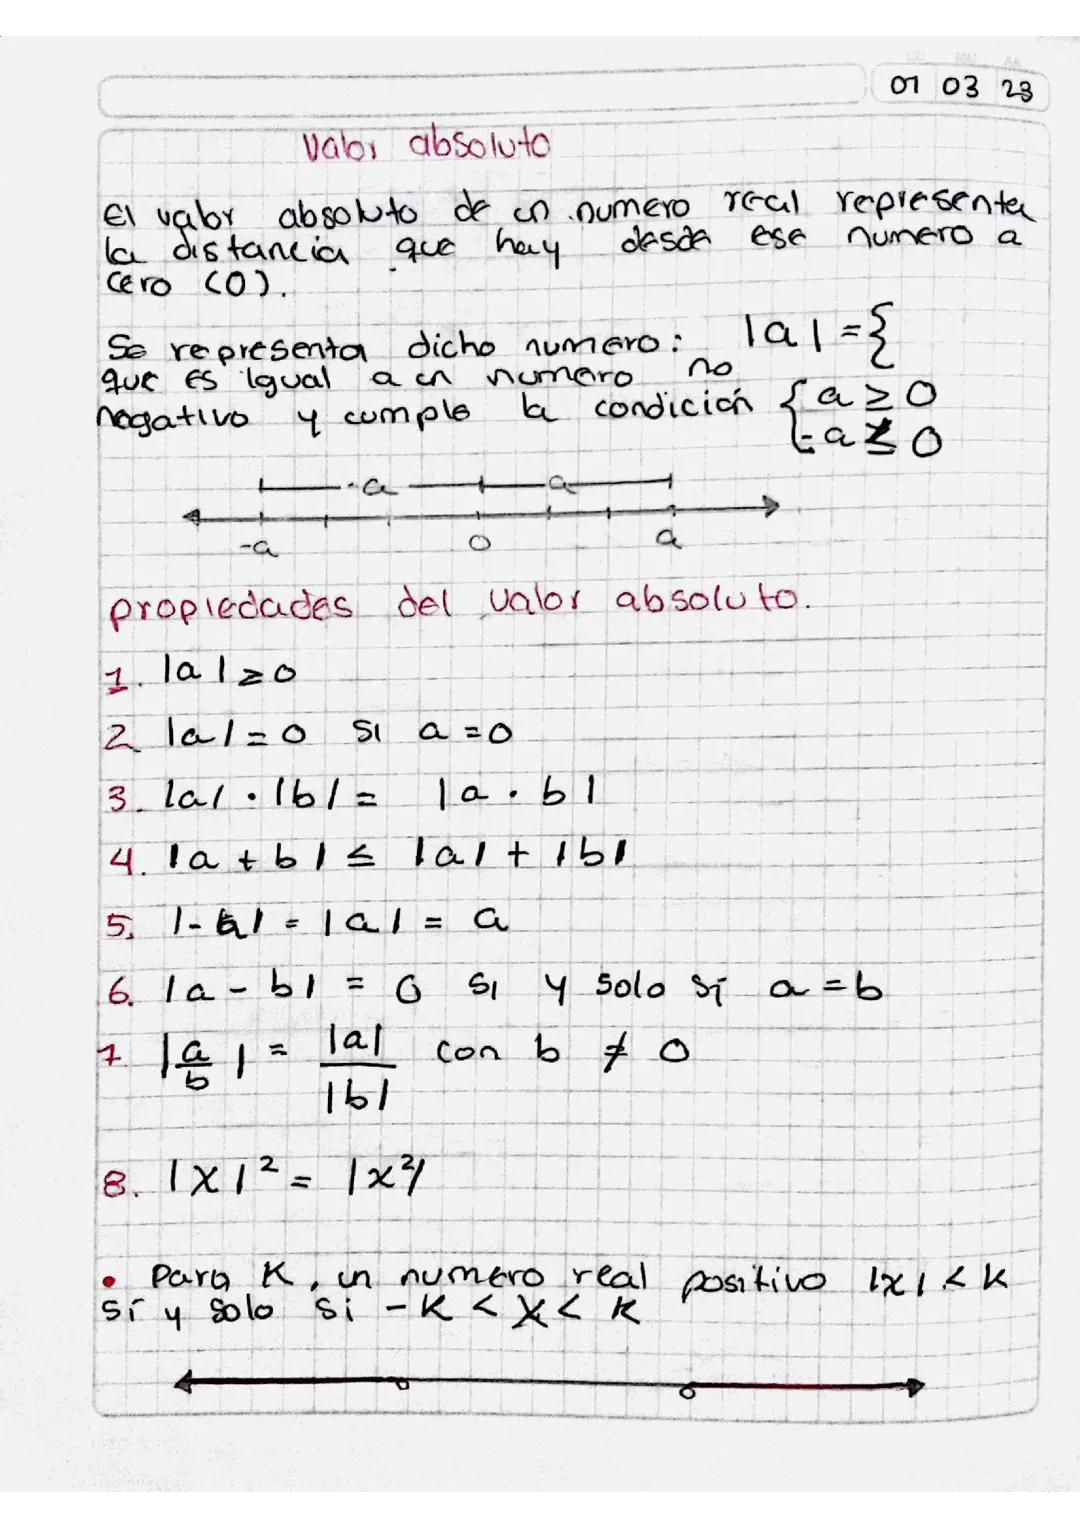 01 03 23
Valor absoluto
El valor absoluto de un numero real representa
la distancia que hay desde ese numero a
cero (0).
Se representa dicho numero: |a| = {
que es igual a un numero no
negativo y cumple la condición { a ≥ 0
- a ≤ 0
-a a
-a 0 a
propiedades del valor absoluto.
1. |a| ≥ 0
2 |a| = 0 si a = 0
3. |a| · |b| = |a · b|
4. |a + b| ≤ |a| + |b|
5. |-a| = |a| = a
6. |a - b| = 0 si y solo sí a = b
7 |a/b| = |a|/|b| con b ≠ 0
8. |x|² = |x²|
• Para K, un numero real positivo |x| < k
sí y solo si - K < x < k